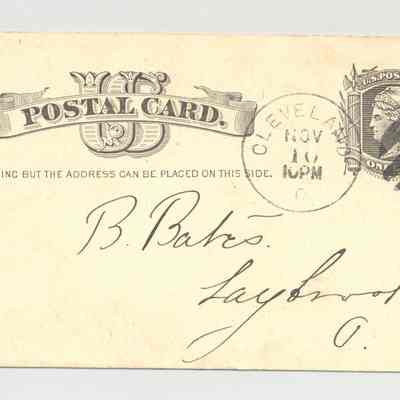 U.S. POS
US
POSTAL CARD.
CLEVELAND
NOV
10
10PM
O.
ING BUT THE ADDRESS CAN BE PLACED ON THIS SIDE.
B. Bates.
O.